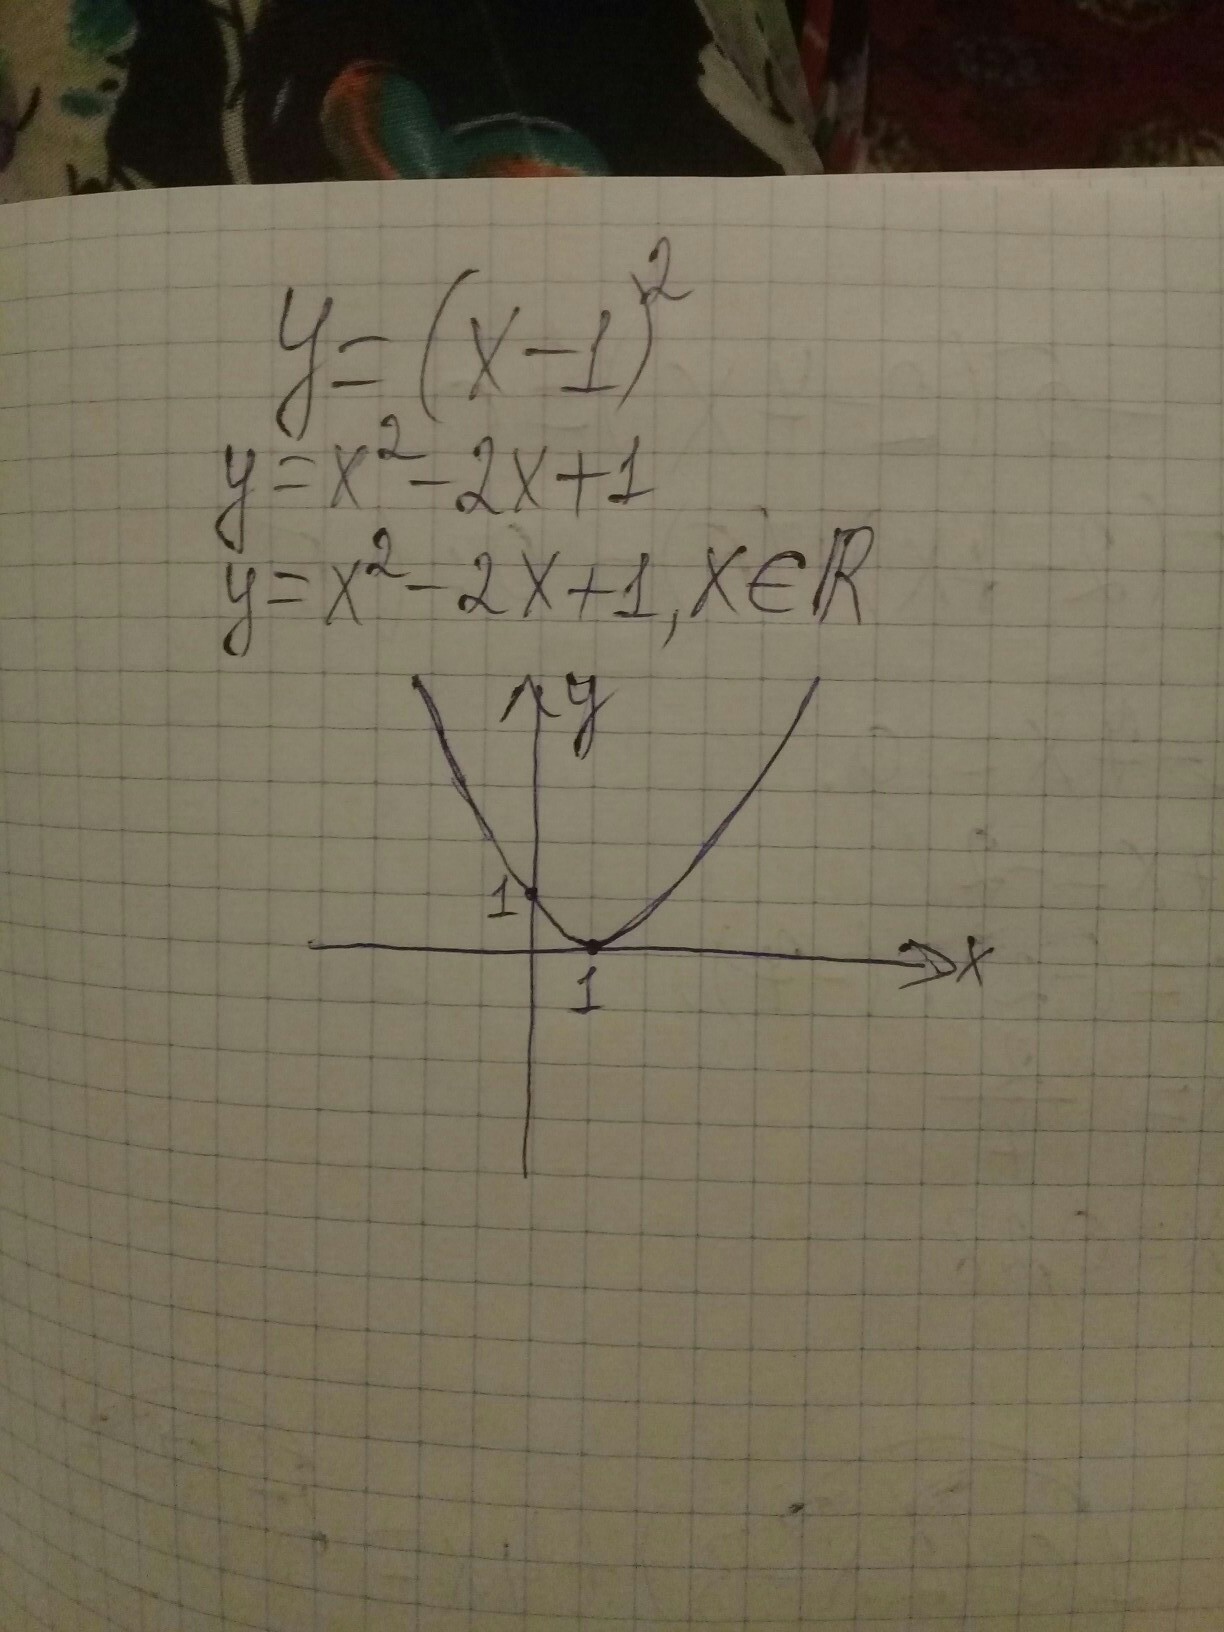 y=(x-1)²
y=x²-2x+1
y=x²-2x+1, x∈ℝ
y
1
x
1